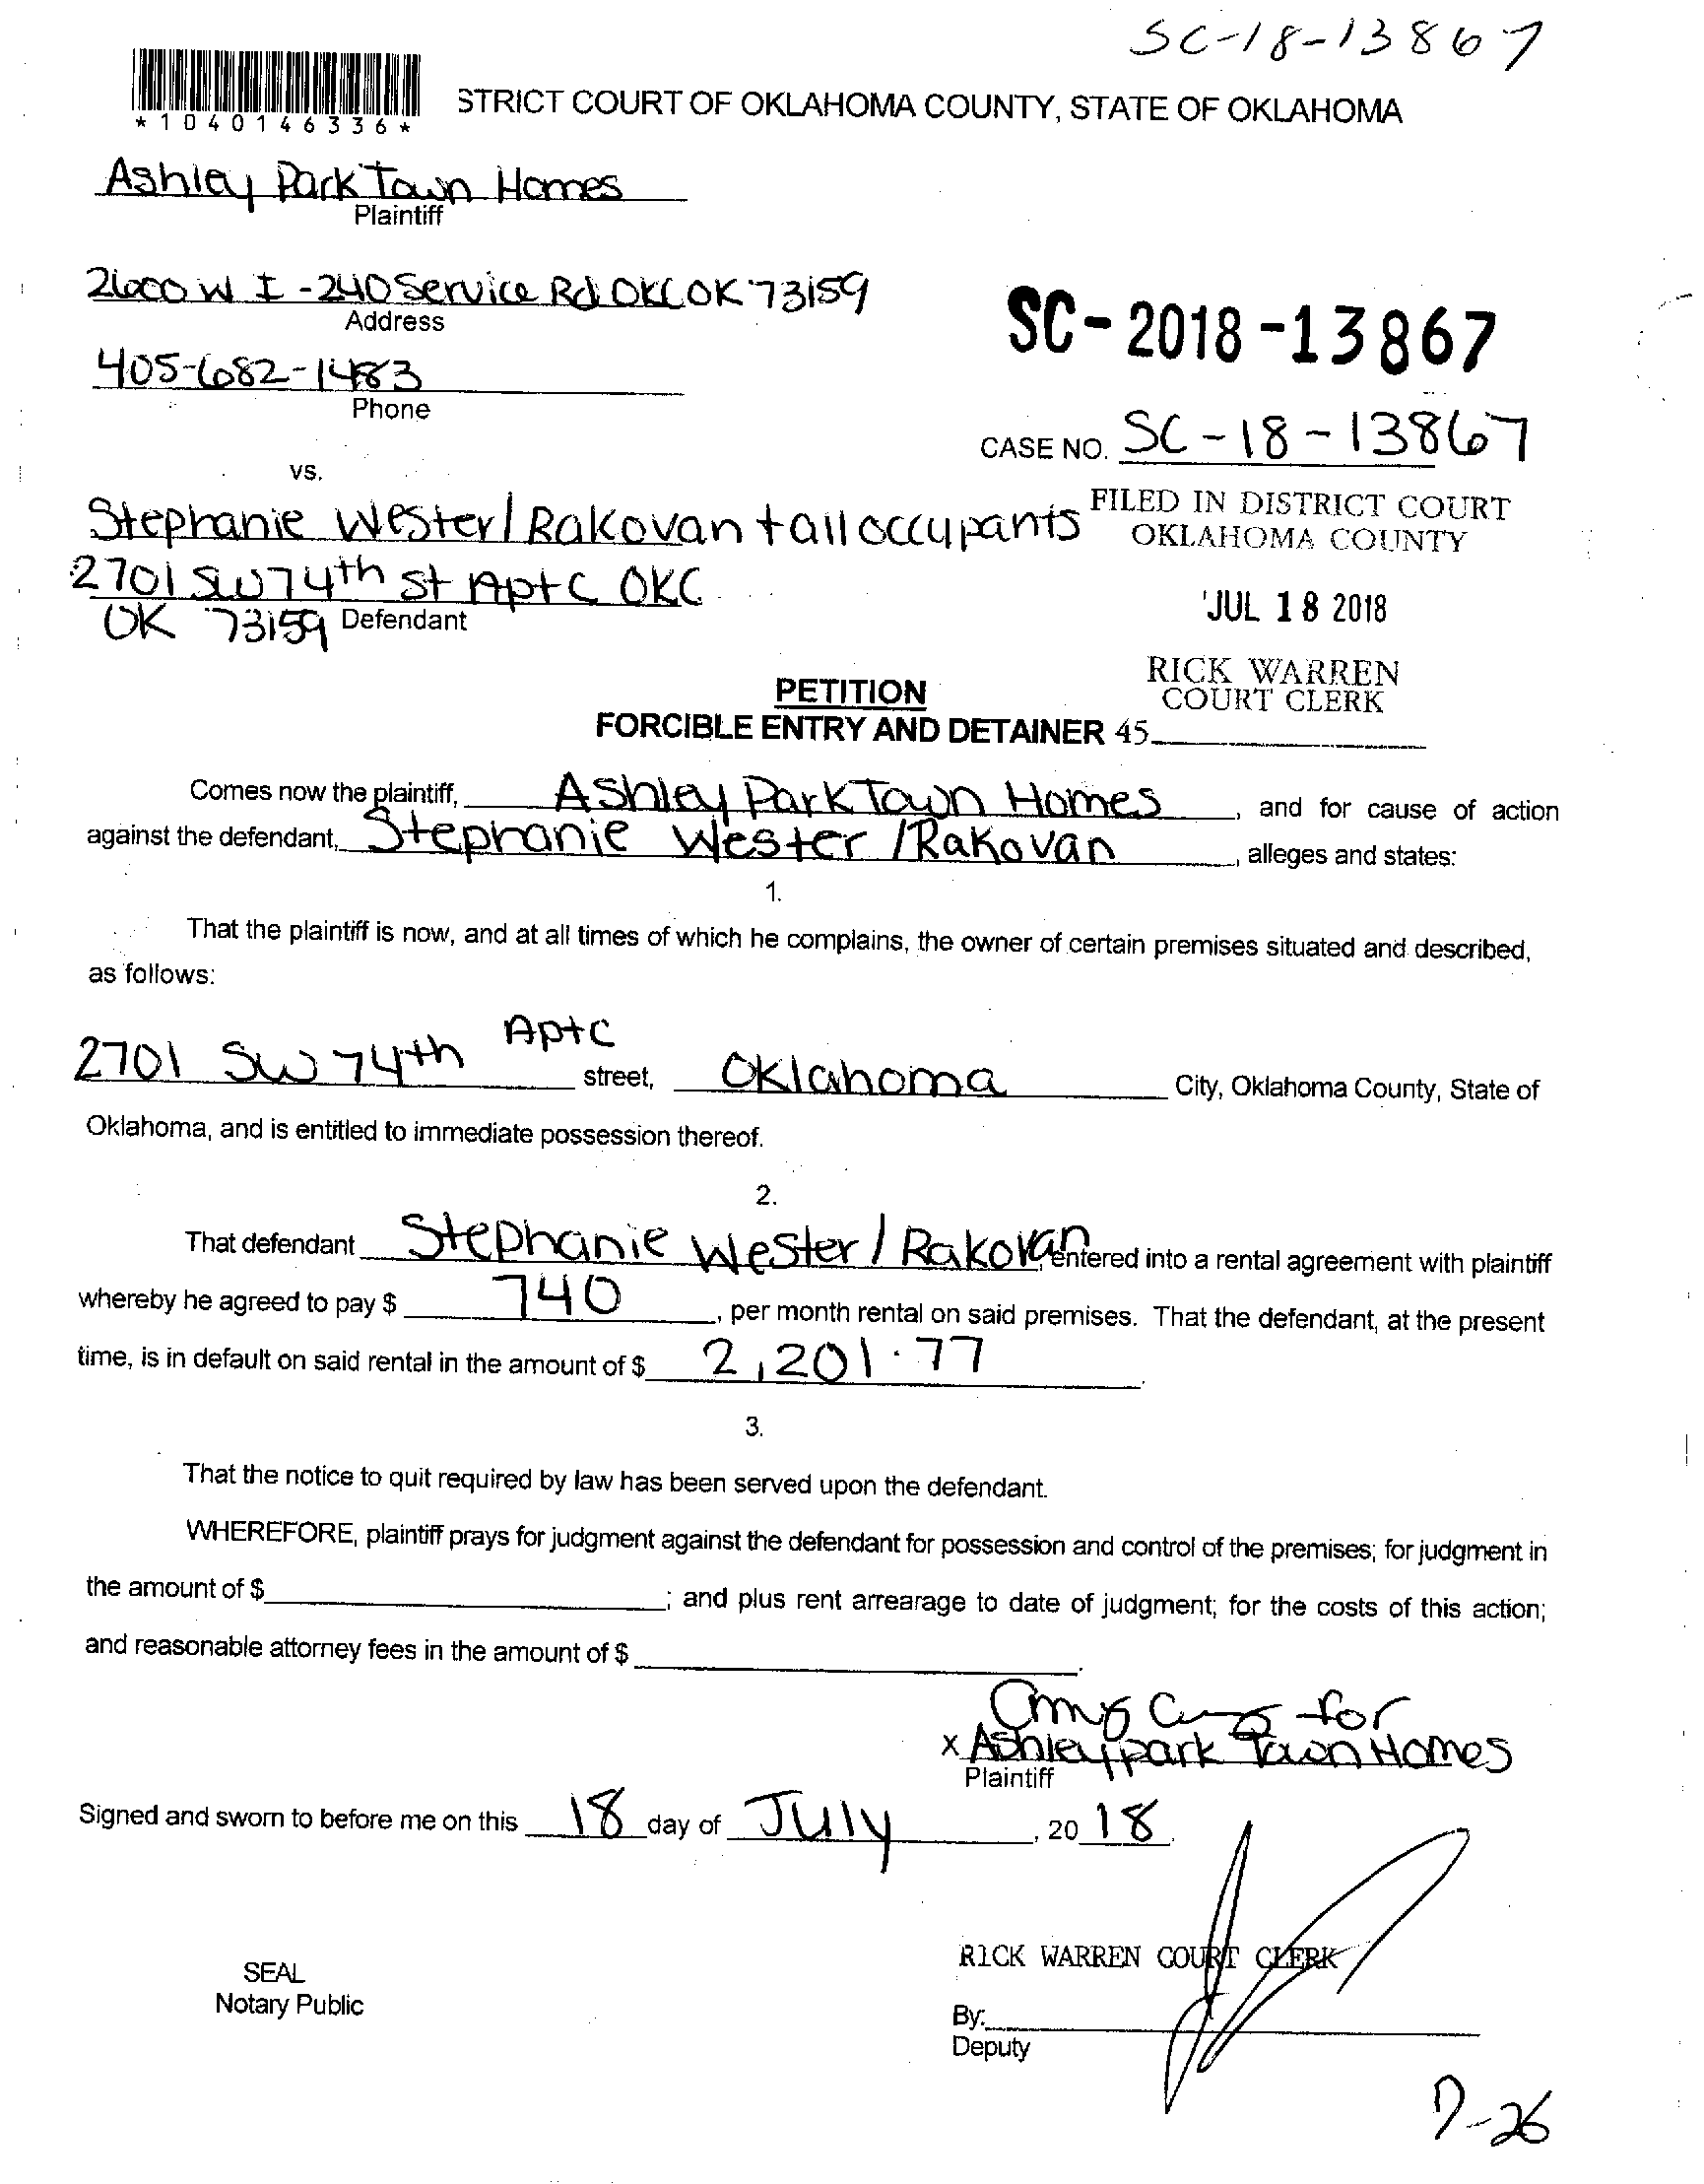 SC-18-13867
*1040146336*
STRICT COURT OF OKLAHOMA COUNTY, STATE OF OKLAHOMA
Ashley Park Town Homes
Plaintiff
2600 W I-240 Service Rd OKC OK 73159
Address
SC-2018-13867
405-682-1483
Phone
CASE NO. SC-18-13867
vs.
FILED IN DISTRICT COURT
OKLAHOMA COUNTY
Stephanie Wester/Rakovan + all occupants
2701 SW 74th St Apt C OKC
OK 73159 Defendant
JUL 18 2018
RICK WARREN
COURT CLERK
PETITION
FORCIBLE ENTRY AND DETAINER 45
Comes now the plaintiff, Ashley Park Town Homes, and for cause of action
against the defendant, Stephanie Wester/Rakovan, alleges and states:
1.
That the plaintiff is now, and at all times of which he complains, the owner of certain premises situated and described,
as follows:
2701 SW 74th Apt C street, Oklahoma City, Oklahoma County, State of
Oklahoma, and is entitled to immediate possession thereof.
2.
That defendant Stephanie Wester/Rakovan, entered into a rental agreement with plaintiff
whereby he agreed to pay $ 740, per month rental on said premises. That the defendant, at the present
time, is in default on said rental in the amount of $ 2,201.77.
3.
That the notice to quit required by law has been served upon the defendant.
WHEREFORE, plaintiff prays for judgment against the defendant for possession and control of the premises; for judgment in
the amount of $; and plus rent arrearage to date of judgment; for the costs of this action;
and reasonable attorney fees in the amount of $.
Amy for
x Ashley park Town Homes
Plaintiff
Signed and sworn to before me on this 18 day of July, 2018.
RICK WARREN COURT CLERK
SEAL
Notary Public
By:
Deputy
7-26